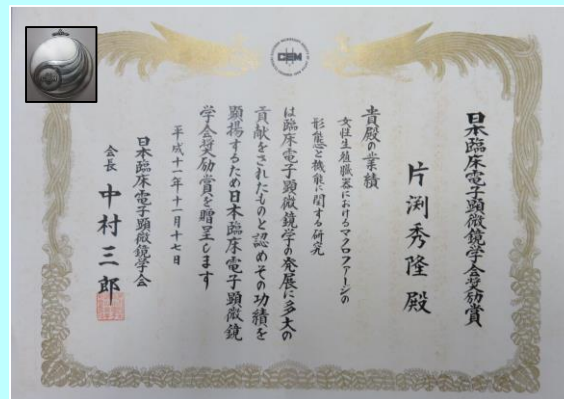 日本臨床電子顕微鏡学会奨励賞
片渕秀隆殿
貴殿の業績
女性生殖器におけるマクロファージの
形態と機能に関する研究
は臨床電子顕微鏡学の発展に多大の
貢献をされたものと認めその功績を
顕揚するため日本臨床電子顕微鏡
学会奨励賞を贈呈します
平成十一年十一月十七日
日本臨床電子顕微鏡学会
会長 中村三郎
CEM